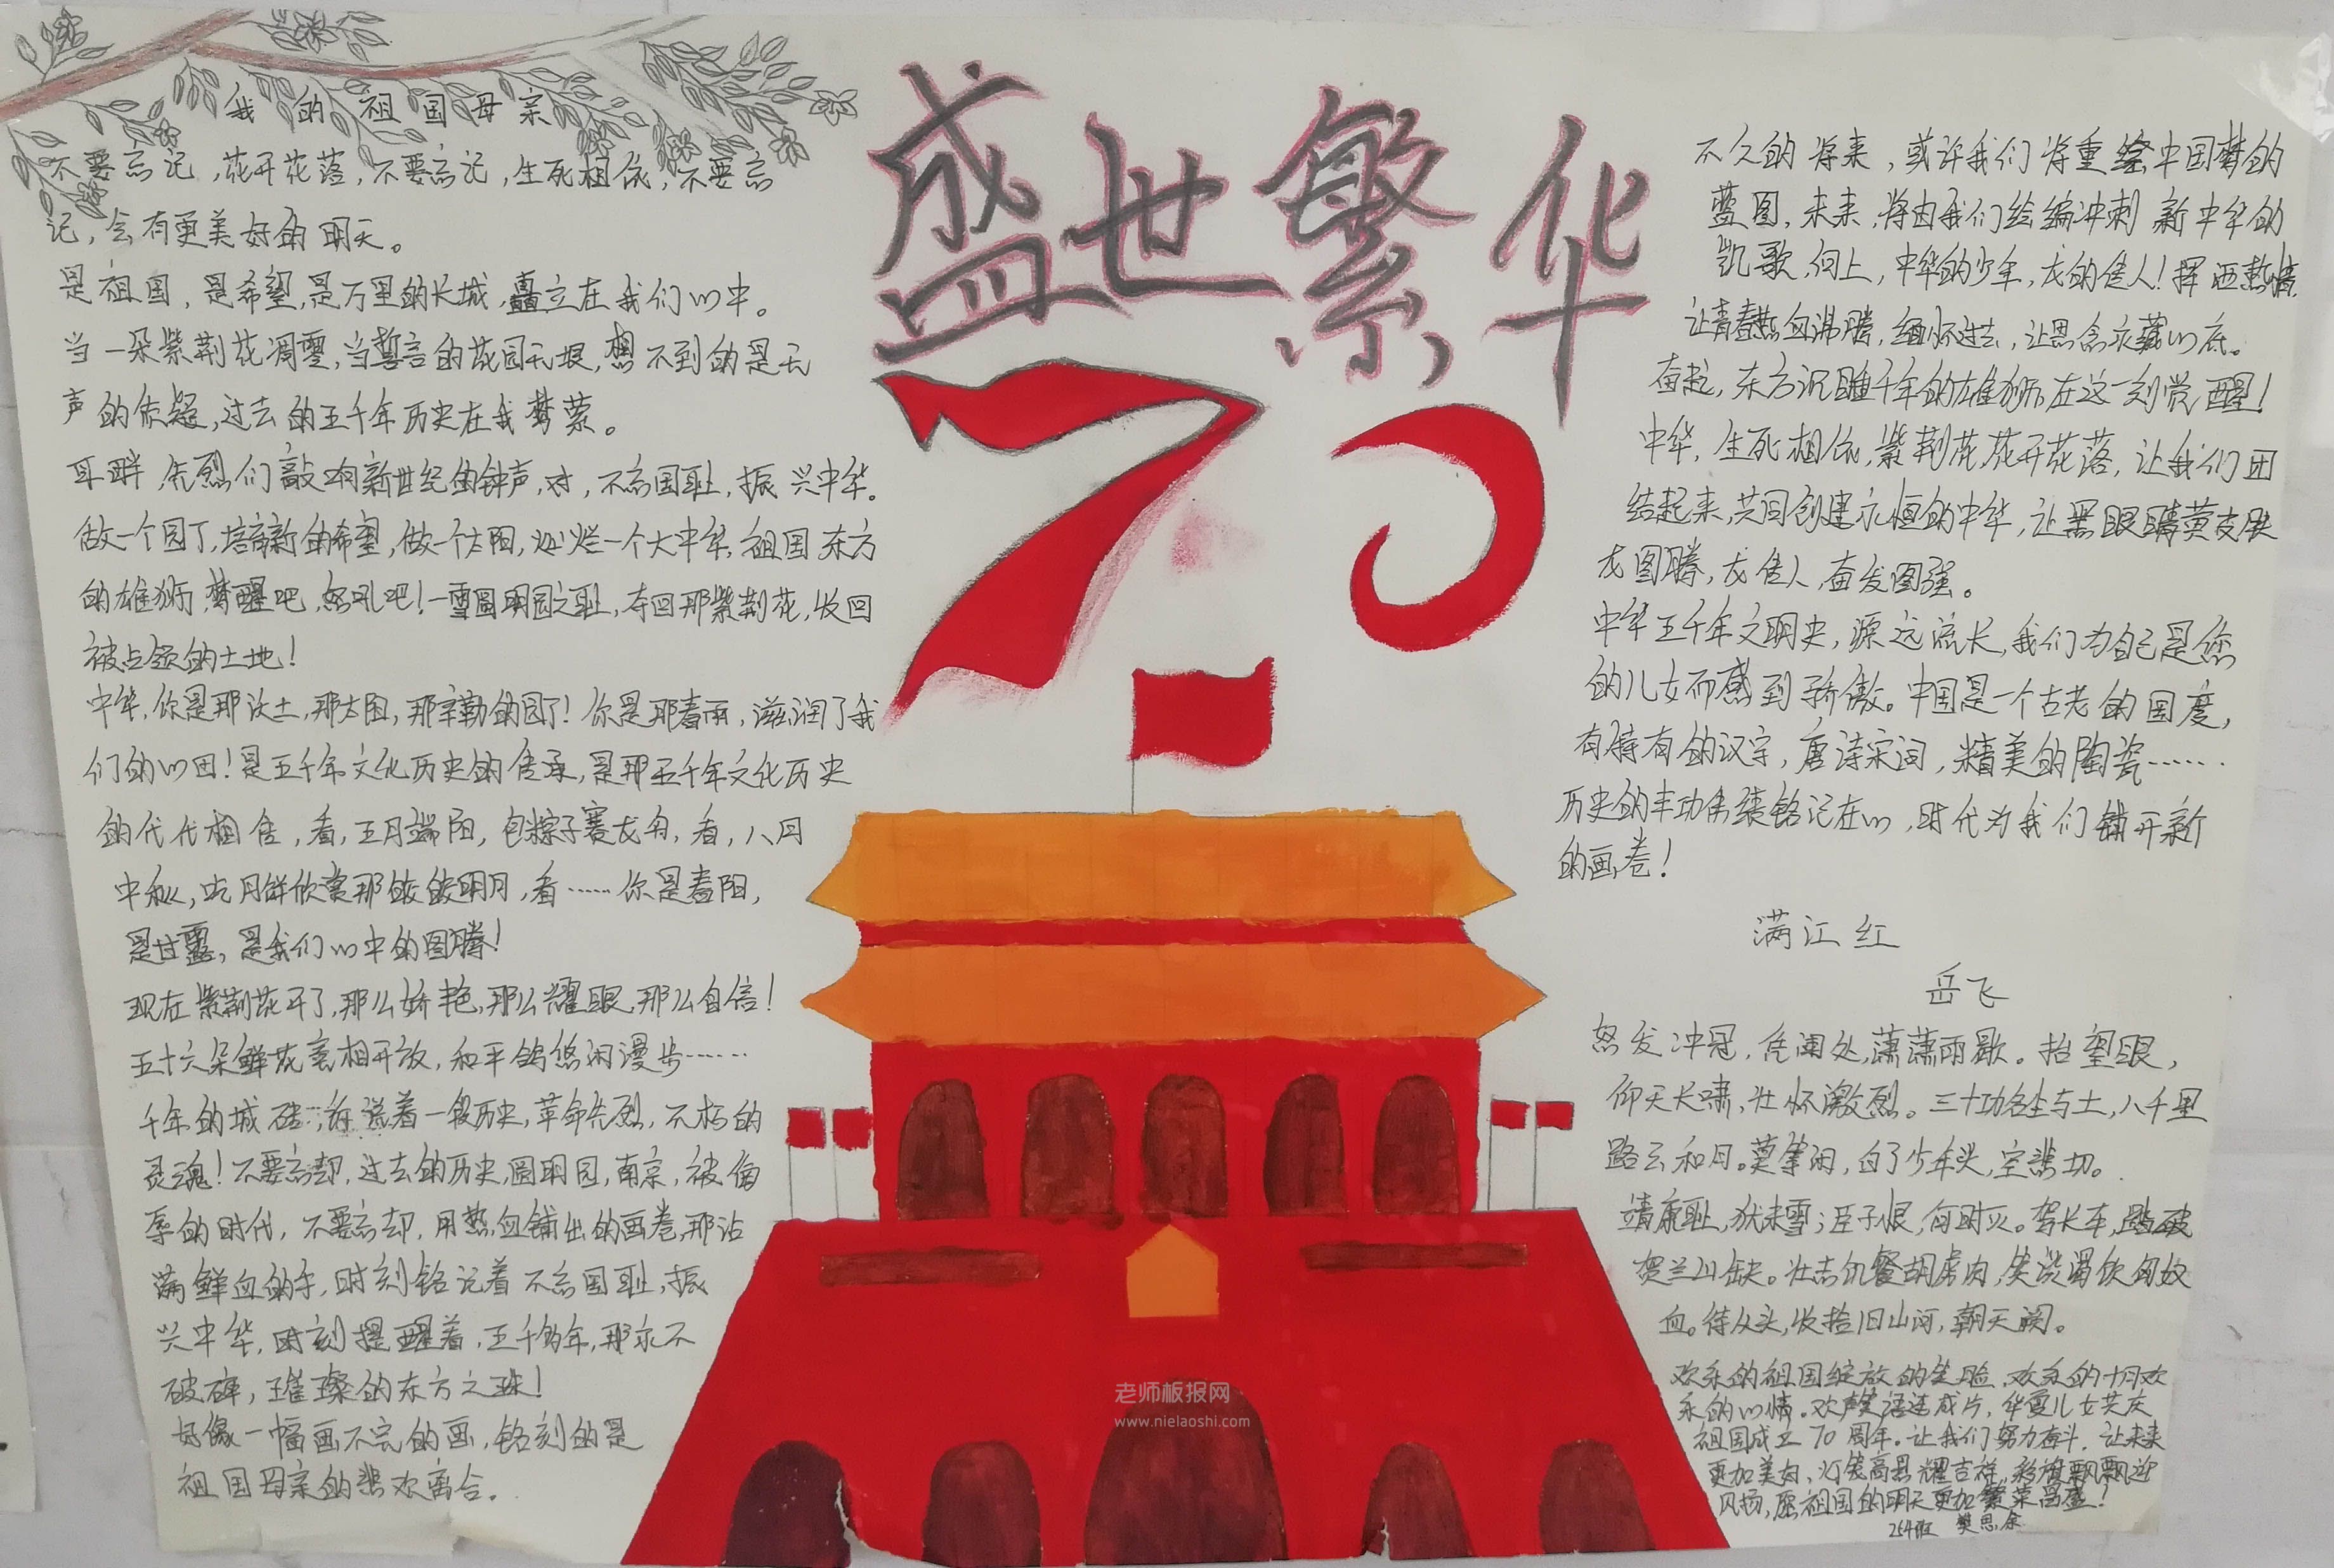 盛世繁华
70
我的祖国母亲
不要忘记,花开花落,不要忘记,生死相依,不要忘
记,会有更美好的明天。
是祖国,是希望,是万里的长城,矗立在我们心中。
当一朵紫荆花凋零,当誓言的花园无垠,想不到的是无
声的依恋,过去的五千年历史在我梦萦。
耳畔,先烈们敲响新世纪的钟声,对,不忘国耻,振兴中华。
做一个园丁,培育新的希望,做一个太阳,灿烂一个大中华,祖国东方
的雄狮,梦醒吧,怒吼吧!一雪圆明园之耻,夺回那紫荆花,收回
被占领的土地!
中华,你是那沃土,那太阳,那辛勤的园丁!你是那春雨,滋润了我
们的心田!是五千年文化历史的传承,是那五千年文化历史
的代代相传,看,五月端阳,包粽子赛龙舟,看,八月
中秋,吃月饼欣赏那皎皎明月,看……你是春阳,
是甘露,是我们心中的图腾!
现在紫荆花开了,那么娇艳,那么耀眼,那么自信!
五十六朵鲜花竞相开放,和平鸽悠闲漫步……
千年的城砖,诉说着一段历史,革命先烈,不朽的
灵魂!不要忘却,过去的历史,圆明园,南京,被侮
辱的时代,不要忘却,用热血铺出的画卷,那沾
满鲜血的手,时刻铭记着不忘国耻,振
兴中华,时刻提醒着,五千多年,那永不
破碎,璀璨的东方之珠!
好像一幅画不完的画,铭刻的是
祖国母亲的悲欢离合。
不久的将来,或许我们将重绘中国梦的
蓝图,未来,将由我们绘编冲刺新中华的
凯歌,向上,中华的少年,龙的传人!挥洒热情,
让青春热血沸腾,缅怀过去,让思念永藏心底。
奋起,东方沉睡千年的雄狮,在这一刻觉醒!
中华,生死相依,紫荆花,花开花落,让我们团
结起来,共同创建永恒的中华,让黑眼睛黄皮肤
龙图腾,龙传人,奋发图强。
中华五千年文明史,源远流长,我们为自己是您
的儿女而感到骄傲。中国是一个古老的国度,
有特有的汉字,唐诗宋词,精美的陶瓷……
历史的丰功伟绩铭记在心,时代为我们铺开新
的画卷!
满江红
岳飞
怒发冲冠,凭阑处,潇潇雨歇。抬望眼,
仰天长啸,壮怀激烈。三十功名尘与土,八千里
路云和月。莫等闲,白了少年头,空悲切。
靖康耻,犹未雪;臣子恨,何时灭。驾长车,踏破
贺兰山缺。壮志饥餐胡虏肉,笑谈渴饮匈奴
血。待从头,收拾旧山河,朝天阙。
欢乐的祖国绽放的笑脸,欢乐的十月欢
乐的心情。欢声笑语连成片,华夏儿女共庆
祖国成立70周年。让我们努力奋斗,让未来
更加美好,灯笼高悬耀吉祥,彩旗飘飘迎
风扬,愿祖国的明天更加繁荣昌盛!
254班 樊思余
老师板报网
www.nielaoshi.com